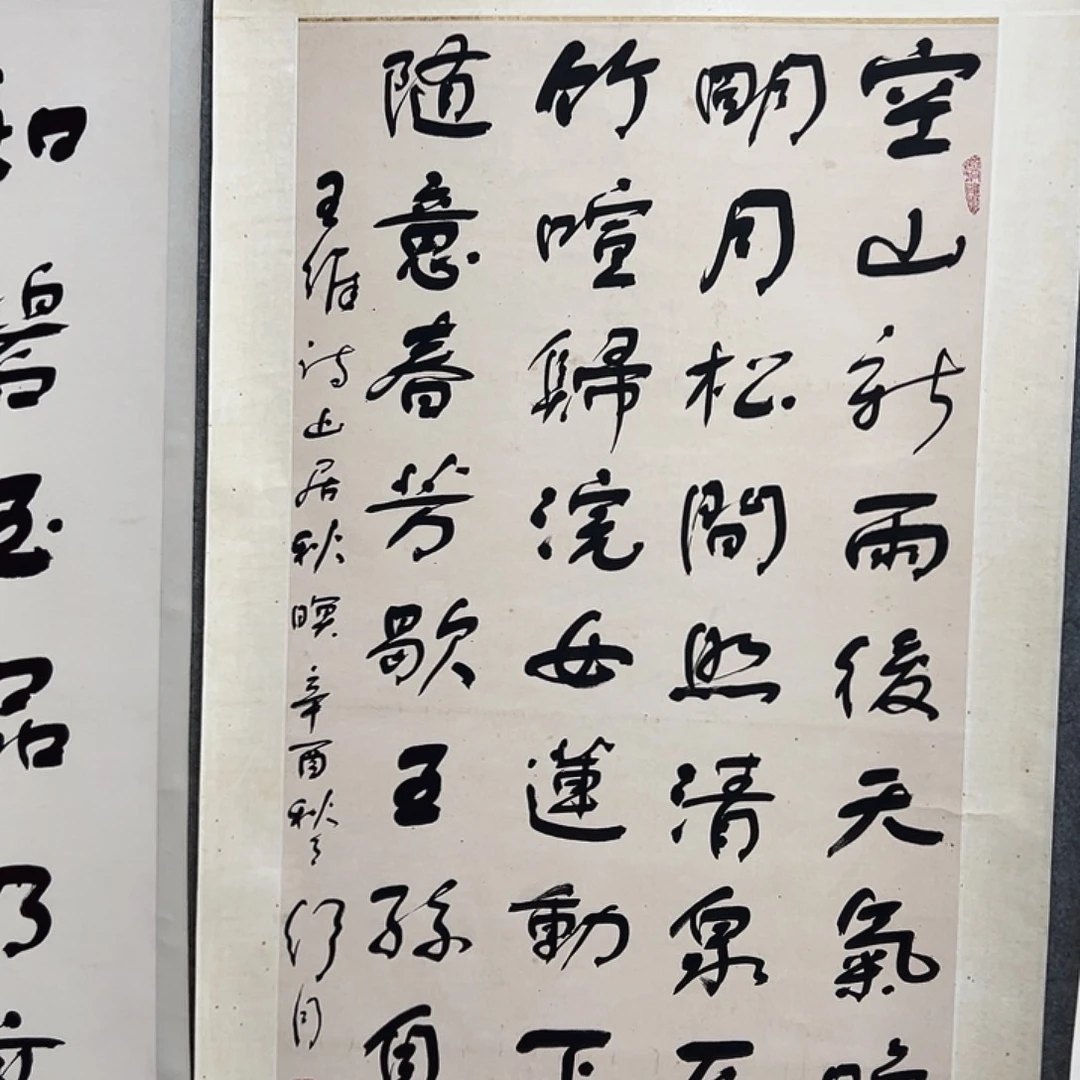 空山新雨後天氣晚
明月松間照清泉石
竹喧歸浣女蓮動下
随意春芳歇王孫自
王維詩山居秋暝 辛酉秋 舒同